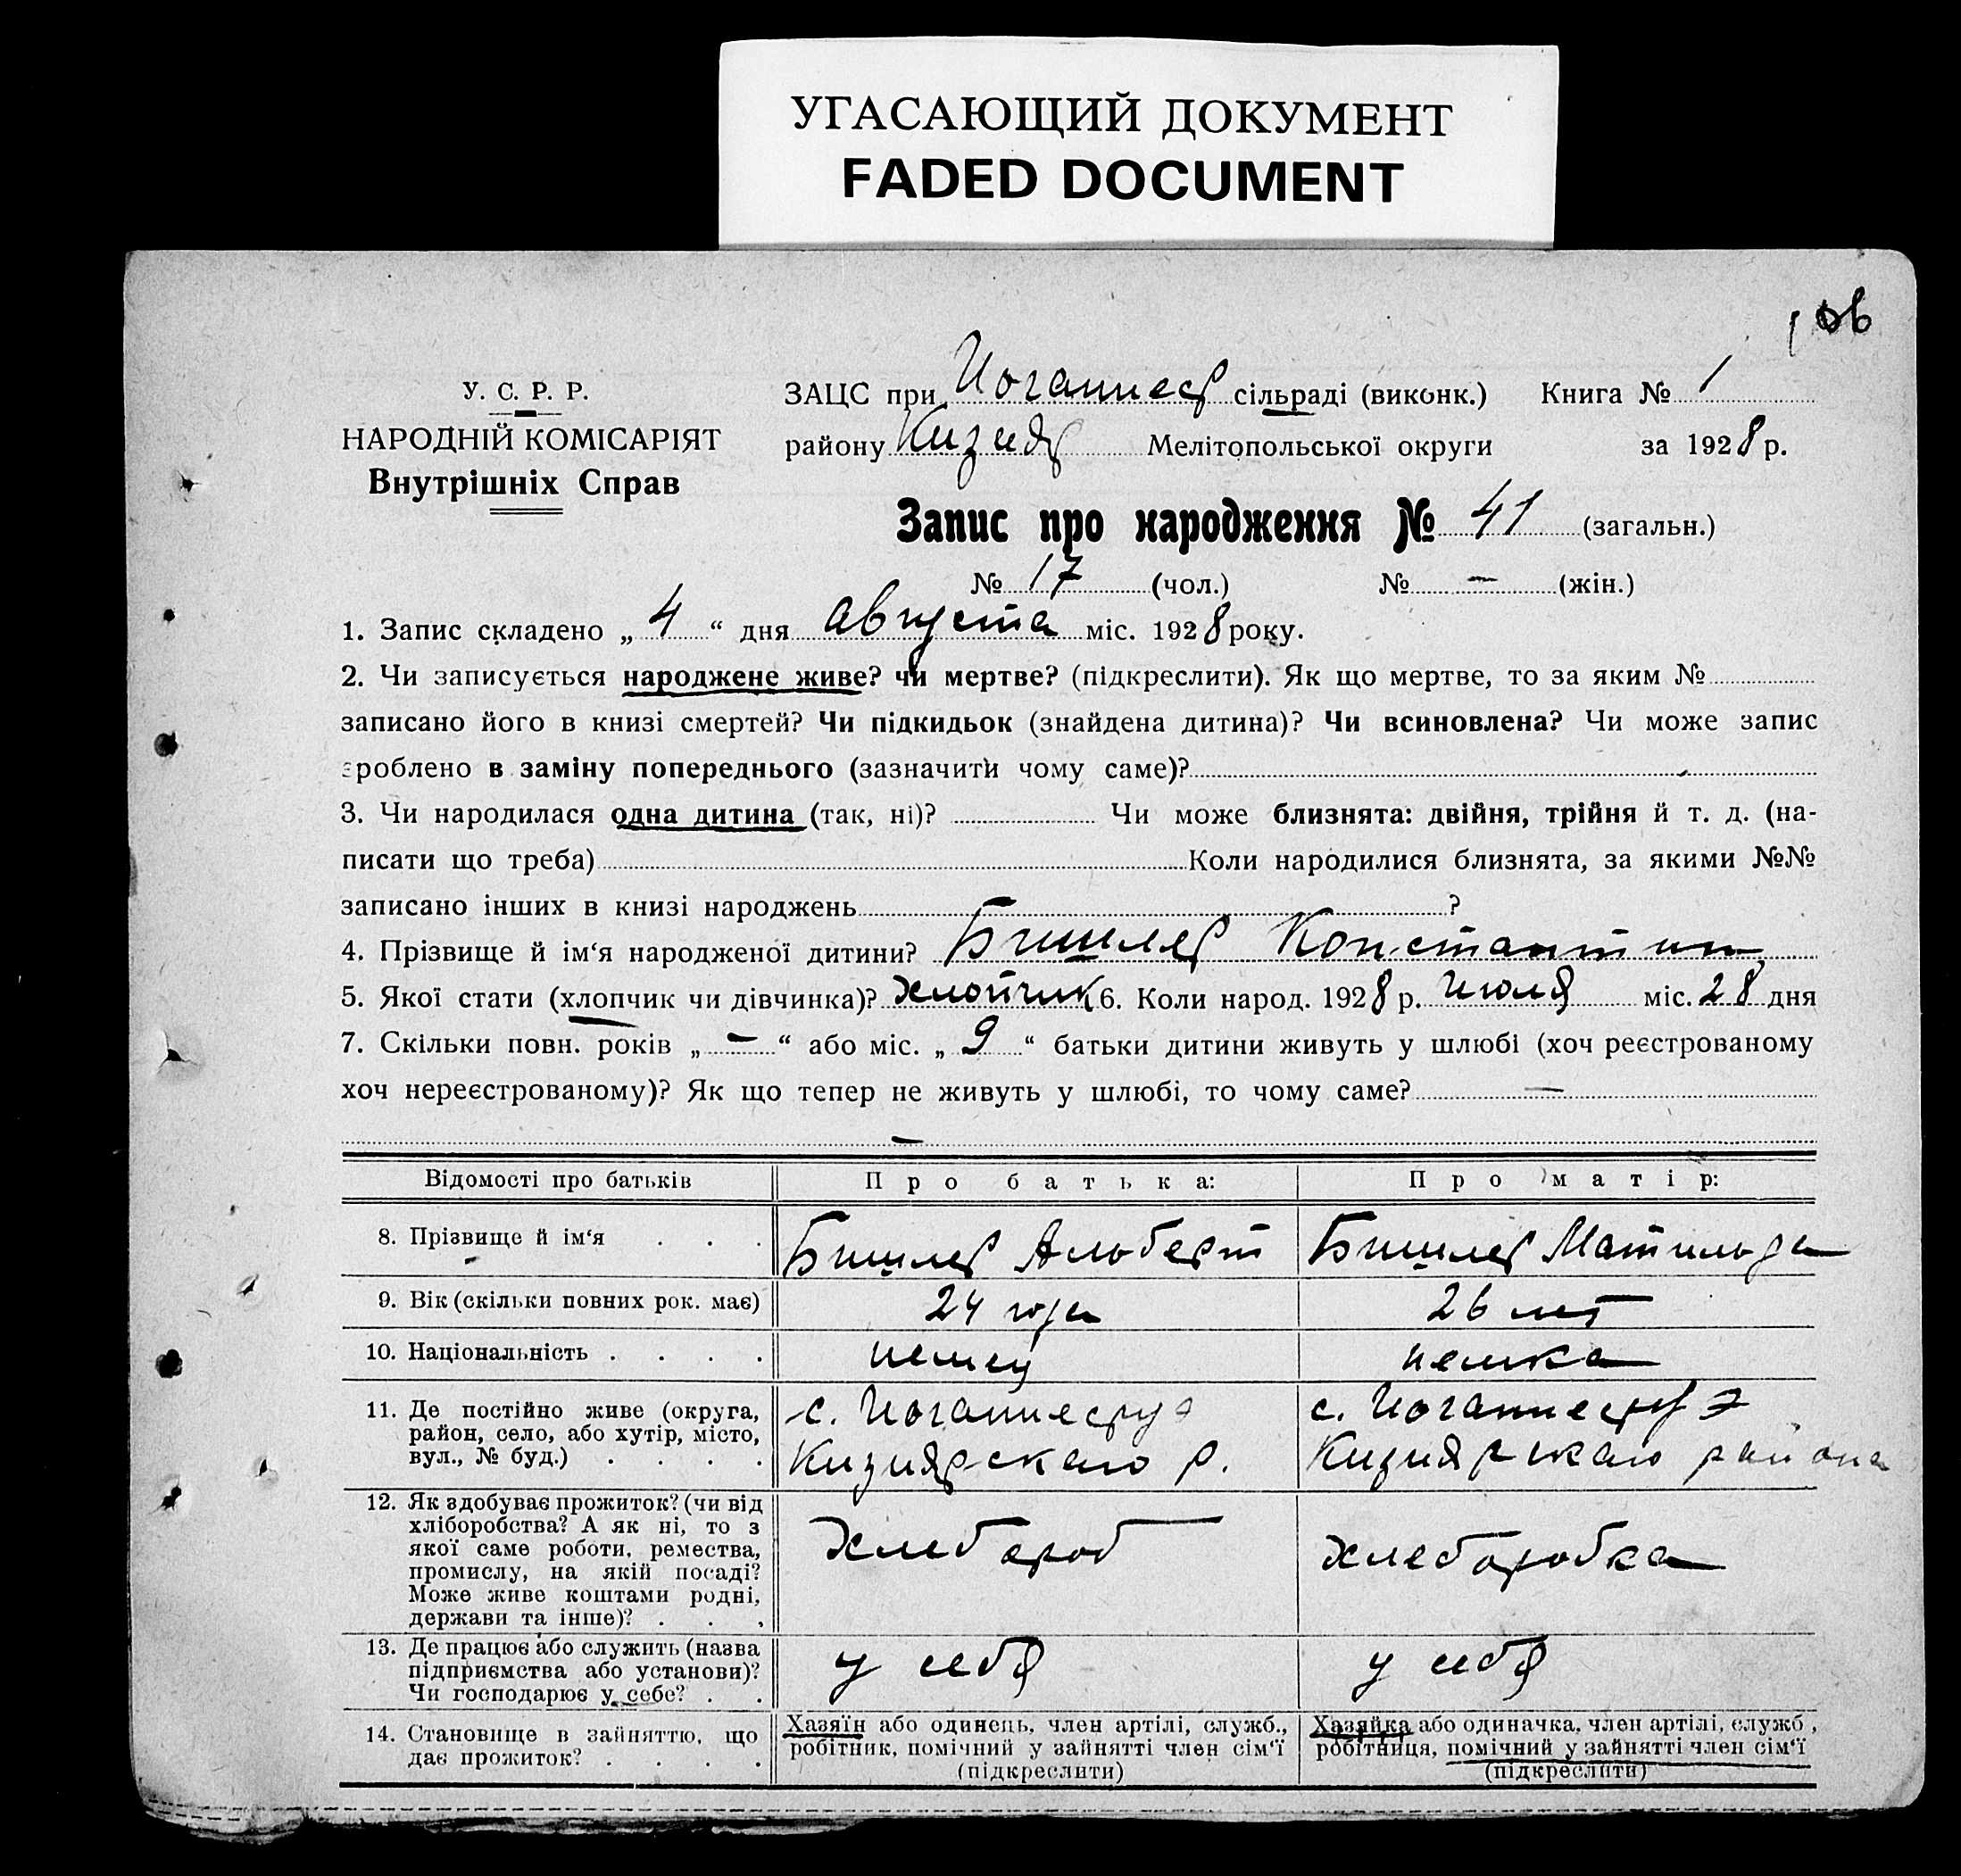 УГАСАЮЩИЙ ДОКУМЕНТ
FADED DOCUMENT
106
У. С. Р. Р.
НАРОДНІЙ КОМІСАРІЯТ
Внутрішніх Справ
ЗАЦС при Иоганнеср сільраді (виконк.) Книга № 1
району Кизияр Мелітопольської округи за 1928 р.
Запис про народження № 41 (загальн.)
№ 17 (чол.) № — (жін.)
1. Запис складено „ 4 “ дня августа міс. 1928 року.
2. Чи записується народжене живе? чи мертве? (підкреслити). Як що мертве, то за яким №
записано його в книзі смертей? Чи підкидьок (знайдена дитина)? Чи всиновлена? Чи може запис
зроблено в заміну попереднього (зазначити чому саме)?
3. Чи народилася одна дитина (так, ні)? Чи може близнята: двійня, трійня й т. д. (на-
писати що треба) Коли народилися близнята, за якими №№
записано інших в книзі народжень ?
4. Прізвище й ім‘я народженої дитини? Бишлер Константин
5. Якої стати (хлопчик чи дівчинка)? хлопчик 6. Коли народ. 1928 р. июля міс. 28 дня
7. Скільки повн. років „ — “ або міс. „ 9 “ батьки дитини живуть у шлюбі (хоч реєстрованому
хоч нереєстрованому)? Як що тепер не живуть у шлюбі, то чому саме? —
—
Відомості про батьків Про батька: Про матір:
8. Прізвище й ім‘я . . . Бишлер Альберт Бишлер Матильда
9. Вік (скільки повних рок. має) 24 года 26 лет
10. Національність . . . . немец немка
11. Де постійно живе (округа,
район, село, або хутір, місто,
вул., № буд.) . . . .
с. Иоганнесруэ
Кизиярскаго р.
с. Иоганнесруэ
Кизиярскаго района
12. Як здобуває прожиток? (чи від
хліборобства? А як ні, то з
якої саме роботи, ремества,
промислу, на якій посаді?
Може живе коштами родні,
держави та інше)? . . .
Хлебороб
хлеборобка
13. Де працює або служить (назва
підприємства або установи)?
Чи господарює у себе? . .
у себя
у себя
14. Становище в зайняттю, що
дає прожиток? . . . .
Хазяїн або одинець, член артілі, служб.,
робітник, помічний у зайнятті член сім‘ї
(підкреслити)
Хазяйка або одиначка, член артілі, служб ,
робітниця, помічний у зайнятті член сім‘ї
(підкреслити)